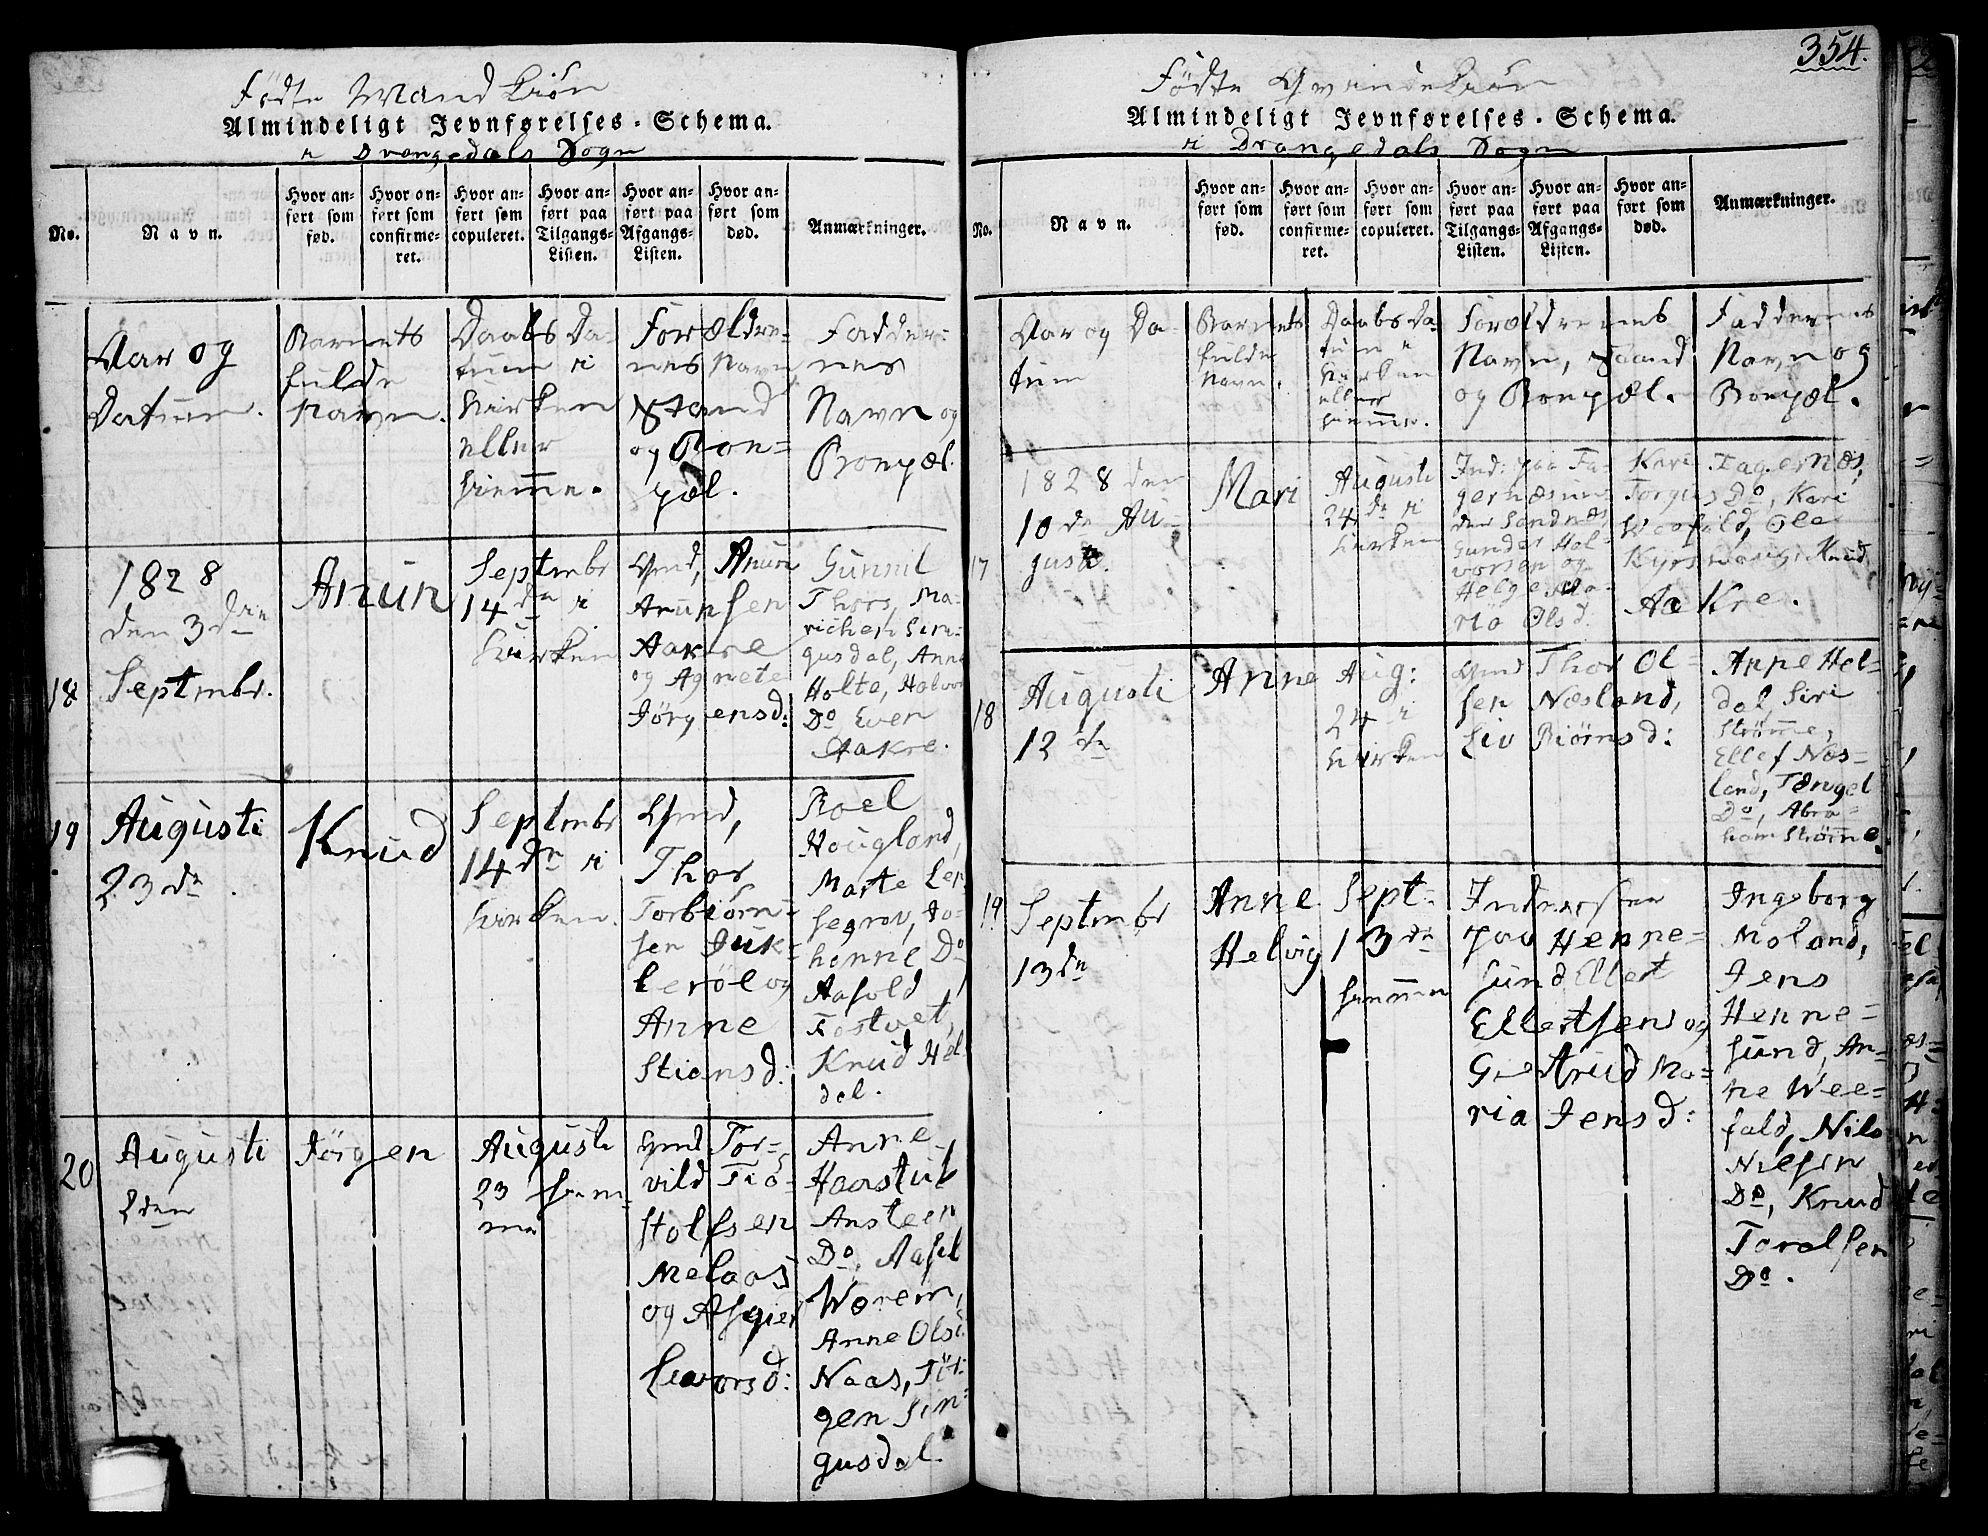 Fødte Mandkiøn
Almindeligt Jevnførelses-Schema.
i Drangedals Sogn
No.
Navn.
Hvor an-
ført som
fød.
Hvor an-
ført som
confirme-
ret.
Hvor an-
ført som
copuleret.
Hvor an-
ført paa
Tilgangs-
Listen.
Hvor an-
ført paa
Afgangs-
Listen.
Hvor an-
ført som
død.
Anmærkninger.
Aar og
Datum.
Barnets
fulde
Navn.
Daabs Da-
tum i
Kirken
eller
hiemme.
Forældre-
nes Navn,
Stand
og Bon-
pæl.
Fadder-
nes
Navn og
Bonpæl.
18
1828
den 3den
Septembr.
Anun
Septmbr
14de i
Kirken
Gmd, Anun
Anunsen
Aakre
og Agnete
Jörgensd:
Gunnil
Thors, Ma-
richen
gusdal, Anne
Holte, Halvor
Do Even
Aakre.
19
Augusti
23de.
Knud
Septmbr
14de i
Kirken.
Gmd,
Thor
Torbiörn-
sen
og
Anne
Stiansd:
Roel
Hougland,
Marte
hanne Do
Aasold
Tostvet,
Knud Hel-
dal.
20
Augusti
2den
Jörgen
Augusti
23 hiem-
me
Gmd Tor-
vild Tiö-
stolfsen
Melaas
og Asgier
Liavorsd:
Anne
Ansteen
Do, Aasil
Anne Olsd.
Naas, Jör-
gen
gusdal.
354.
Fødte Qvindekiøn
Almindeligt Jevnførelses-Schema.
i Drangedals Sogn
No.
Navn.
Hvor an-
ført som
fød.
Hvor an-
ført som
confirme-
ret.
Hvor an-
ført som
copuleret.
Hvor an-
ført paa
Tilgangs-
Listen.
Hvor an-
ført paa
Afgangs-
Listen.
Hvor an-
ført som
død.
Anmærkninger.
Aar og Da-
tum
Barnets
fulde
Navn.
Daabs Da-
tum i
Kirken
eller
hiemme.
Forældrenes
Navn, Stand
og Bonpæl.
Faddernes
Navn og
Bonpæl.
17
1828 den
10de Au-
gusti.
Mari
Augusti
24de i
Kirken
Ind: paa Fa-
gernæs un-
der Sandnæs
Gunder Hal-
vorsen og
Helge Ma-
ria Olsd.
Kari Fagernæs,
Torgius Do, Kari
Weefald, Ole
Knud
Aakre.
18
Augusti
12de
Anne
Aug:
24 i
Kirken
Gmd Thor Ol-
sen Næsland,
Liv Biörnsd:
Anne Hel-
dal, Siri
Strömme,
Ellef Næs-
land, Tarugel
Do, Abra-
ham Strömme.
19
Septmbr
13de
Anne
Helvig
Sept-
13de
hiemme
Inderster
paa Henne-
sund Ellert
Ellertsen og
Giertrud Ma-
ria Jensd:
Ingeborg
Moland,
Jens
Henne-
sund, An-
ne Wee-
fald, Nils
Nielsen
Do, Knud
Toralfsen
Do.